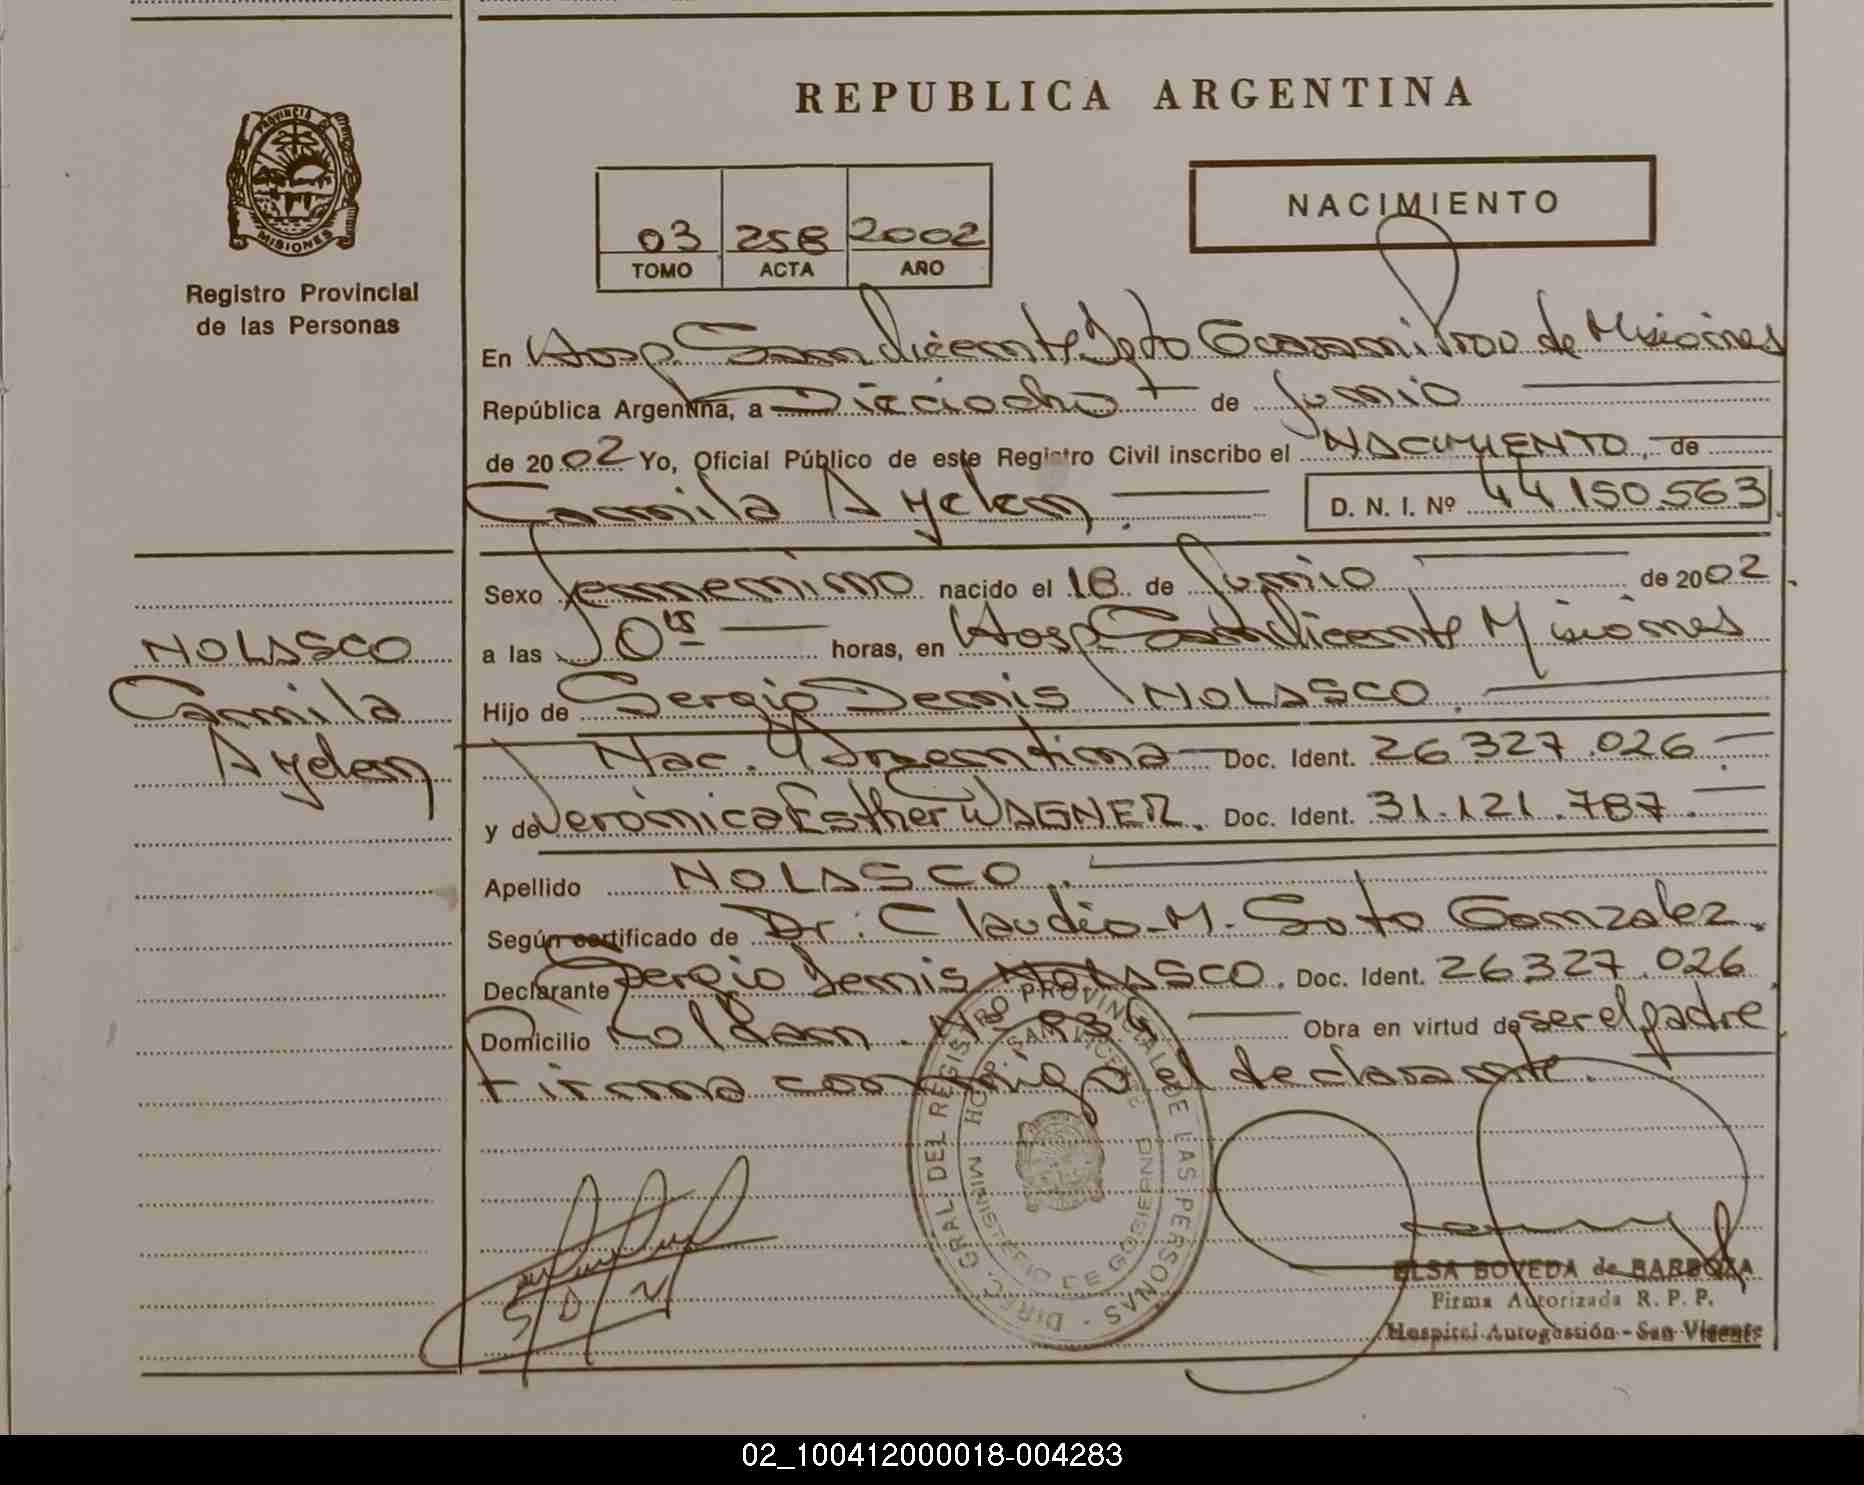 REPUBLICA ARGENTINA
PROVINCIA DE
MISIONES
Registro Provincial
de las Personas
03 258 2002
TOMO ACTA AÑO
NACIMIENTO
En Hosp. San Vicente Dpto Guarani Prov de Misiones
República Argentina, a Dieciocho de Junio
de 2002 Yo, Oficial Público de este Registro Civil inscribo el NACIMIENTO, de
Camila Ayelen. D. N. I. Nº 44.150.563
Sexo femenino nacido el 18 de Junio de 2002
a las horas, en Hosp San Vicente Misiones
NOLASCO
Camila
Ayelen
Hijo de Sergio Denis NOLASCO.
Nac. Argentina Doc. Ident. 26.327.026.
y de Verónica Esther WAGNER. Doc. Ident. 31.121.787.
Apellido NOLASCO.
Según certificado de Dr. Claudio M. Soto Gonzalez.
Declarante Sergio Denis NOLASCO. Doc. Ident. 26.327.026
Domicilio Roldan. Nº Obra en virtud de ser el padre
Firma conmigo el declarante.
DIREC. GRAL DEL REGISTRO PROVINCIAL DE LAS PERSONAS
HOSP. SAN VICENTE
MINISTERIO DE GOBIERNO
S D N
ELSA BOVEDA de BARBOZA
Firma Autorizada R. P. P.
Hospital Autogestión - San Vicente
02_100412000018-004283